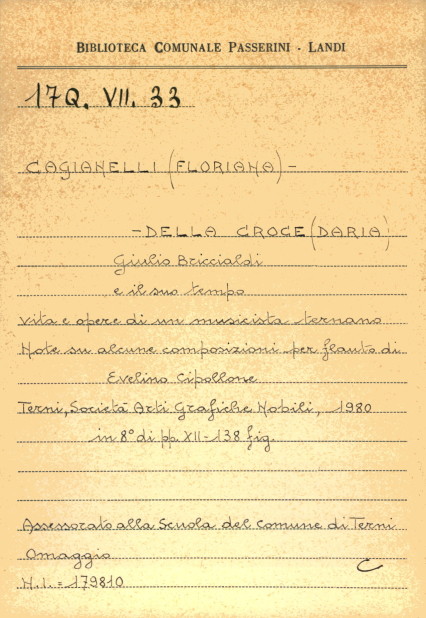 BIBLIOTECA COMUNALE PASSERINI - LANDI
17Q. VII. 33
CAGIANELLI (FLORIANA) -
- DELLA CROCE (DARIA)
Giulio Briccialdi
e il suo tempo
Vita e opere di un musicista ternano
Note su alcune composizioni per flauto di
Evelino Cipollone
Terni, Società Arti Grafiche Nobili, 1980
in 8° di pp. XII-138 fig.
Assessorato alla Scuola del Comune di Terni
Omaggio
N.I. = 179810